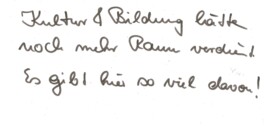 Kultur & Bildung hätte
noch mehr Raum verdient
Es gibt hier so viel davon!